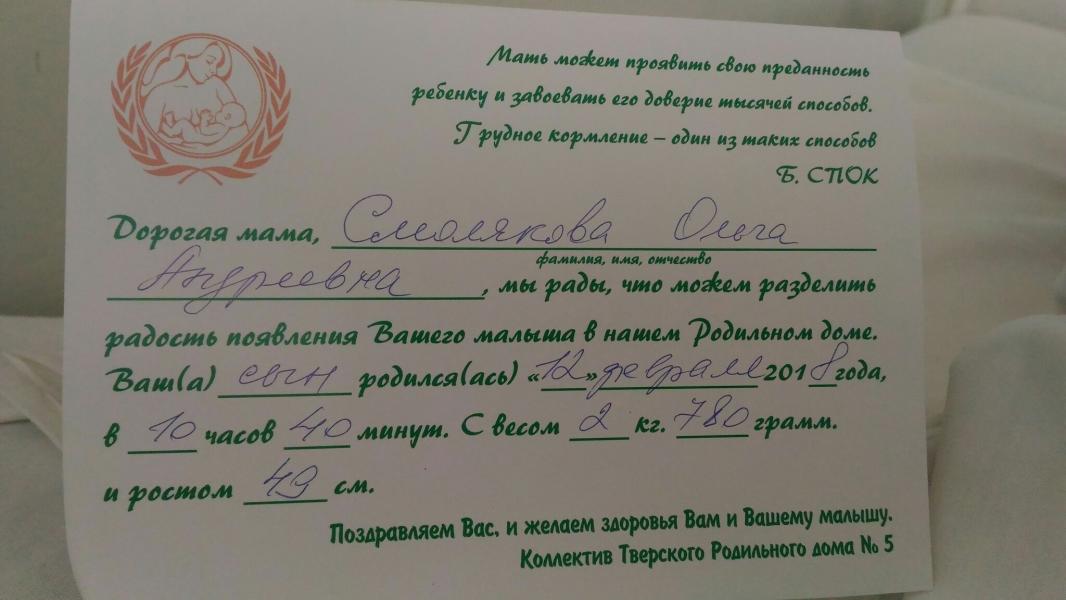 Мать может проявить свою преданность
ребенку и завоевать его доверие тысячей способов.
Грудное кормление – один из таких способов
Б. СПОК
Дорогая мама, Смолякова Ольга
фамилия, имя, отчество
Андреевна, мы рады, что можем разделить
радость появления Вашего малыша в нашем Родильном доме.
Ваш(а) сын родился(ась) «12» февраля 2018 года,
в 10 часов 40 минут. С весом 2 кг. 780 грамм.
и ростом 49 см.
Поздравляем Вас, и желаем здоровья Вам и Вашему малышу.
Коллектив Тверского Родильного дома № 5